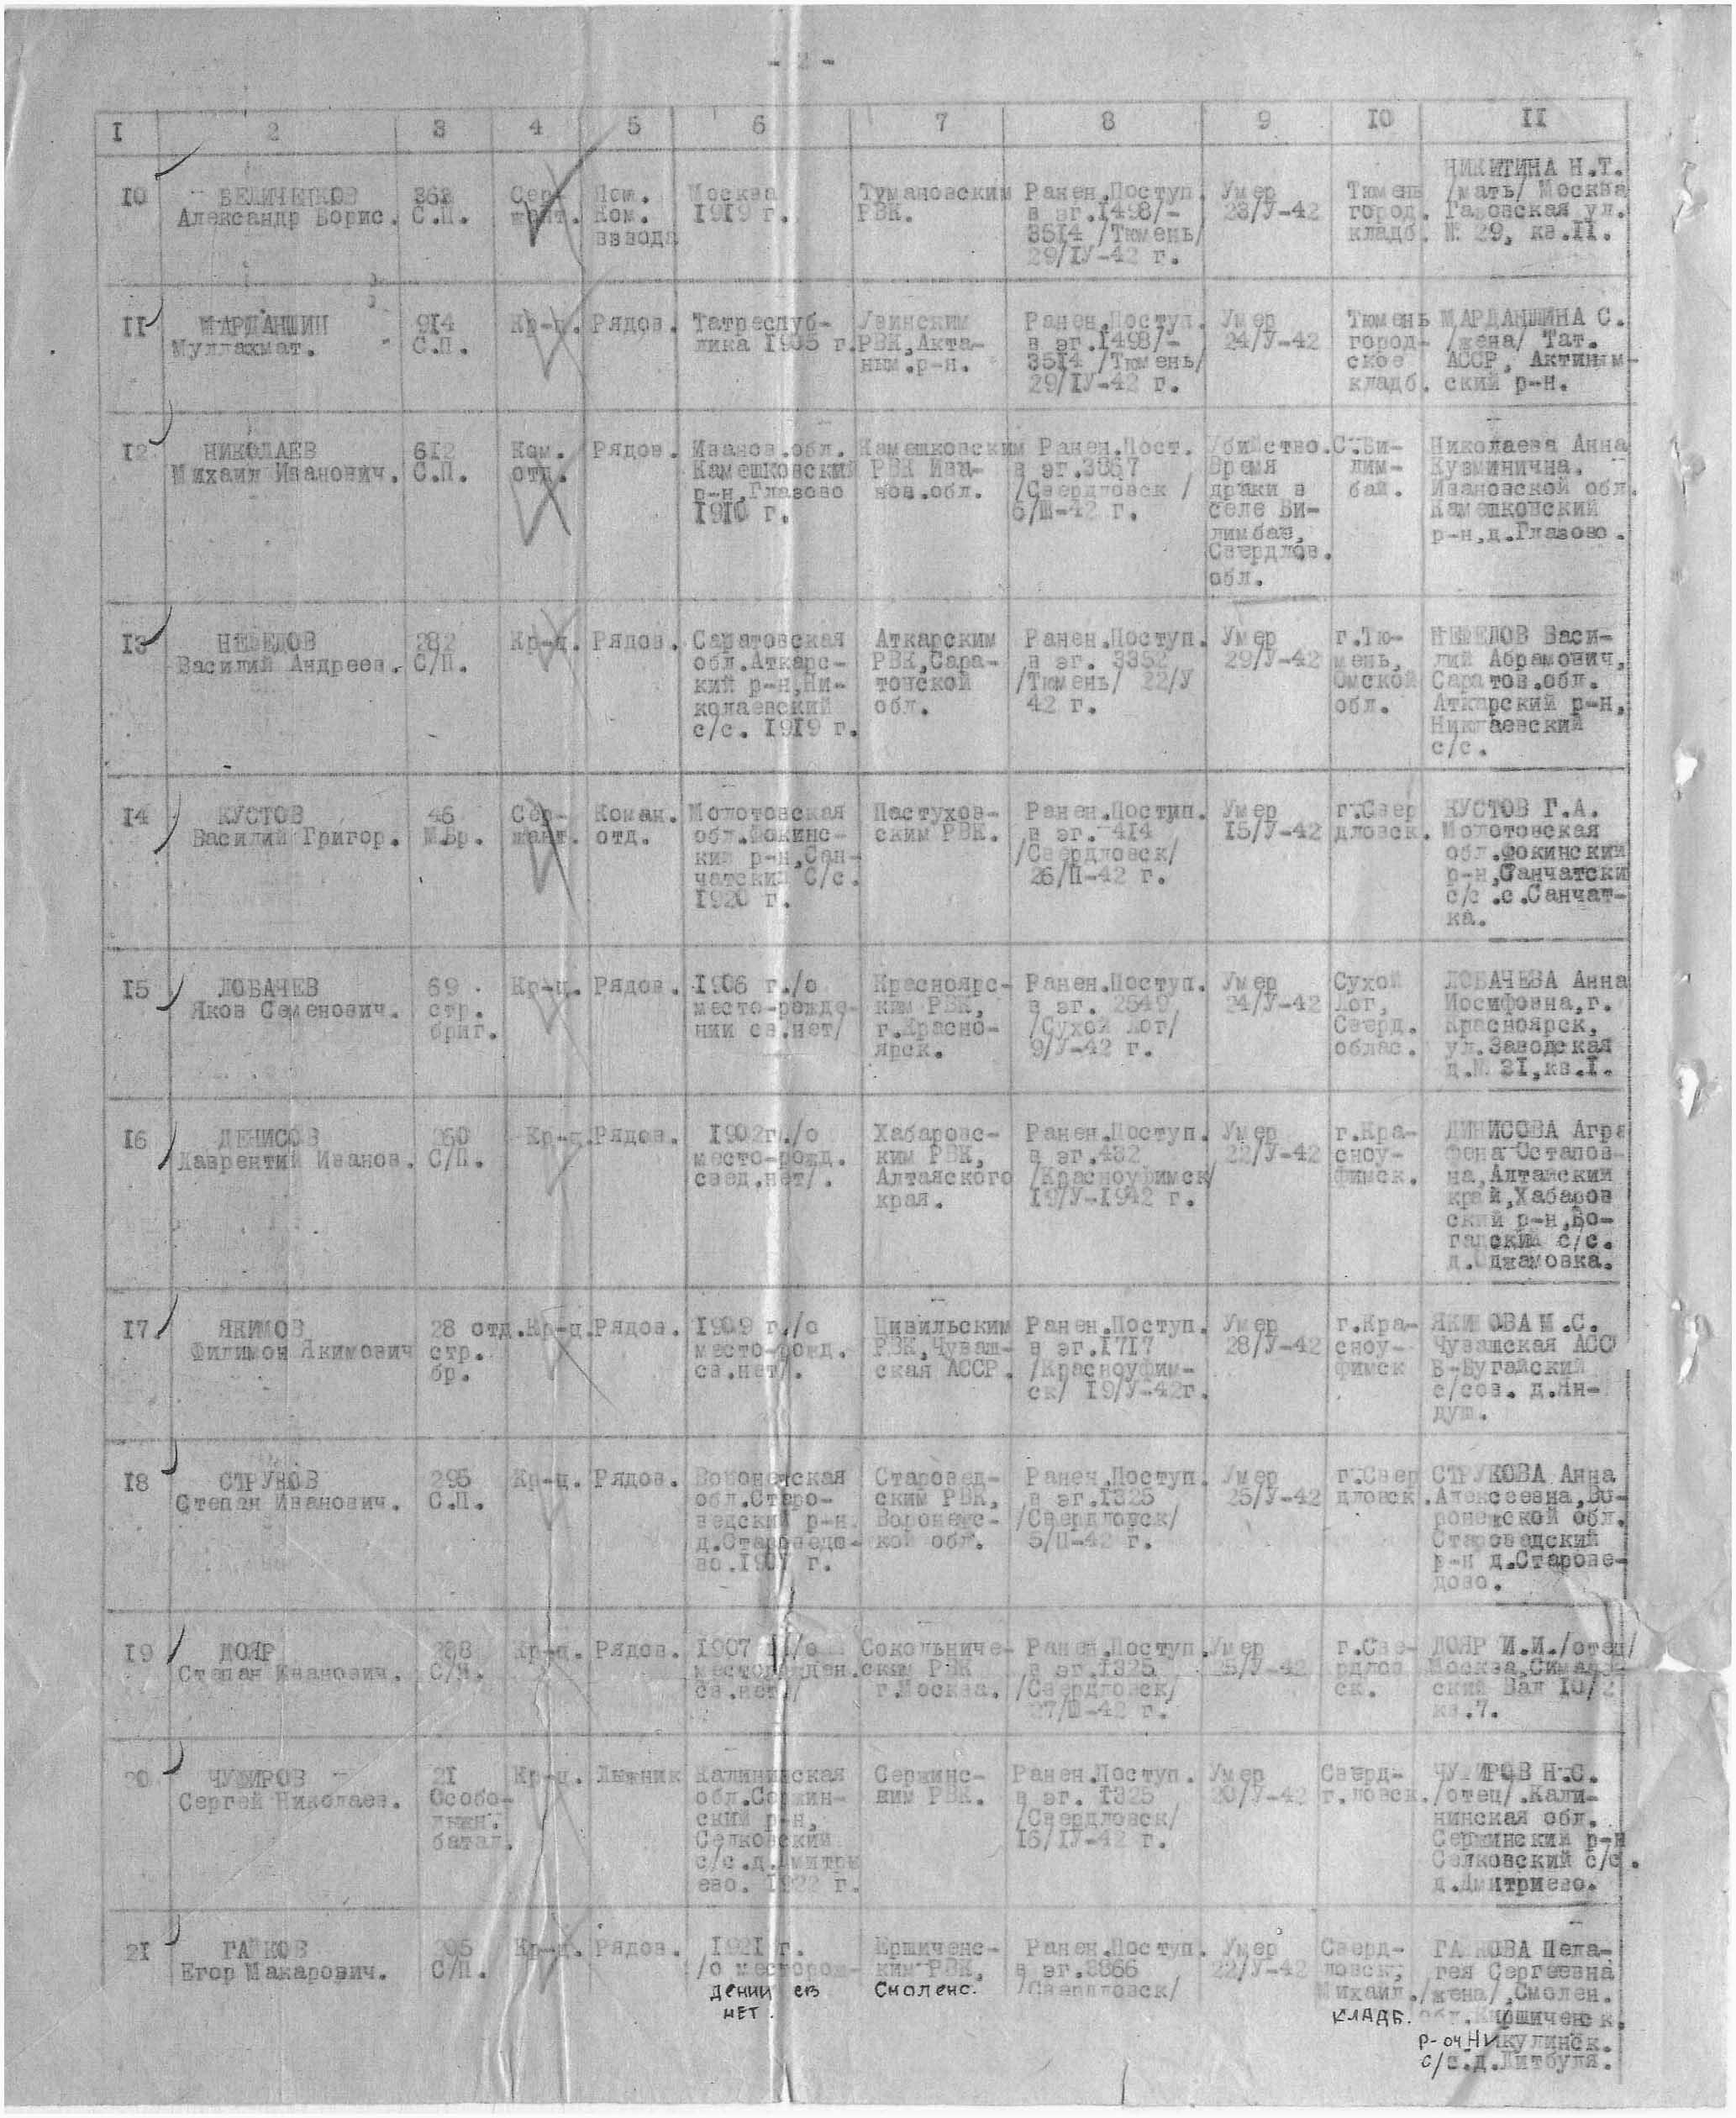 - 2 -
I 2 3 4 5 6 7 8 9 IO II
IO
ВЕЛИЧЕНКОВ
Александр Борис.
С.П.
Сер-
жант.
Пом.
Ком.
взвода
Москва
1919 г.
Тумановским
РВК.
Ранен.Поступ.
в эг.1498/-
3514 /Тюмень/
29/IУ-42 г.
Умер
23/У-42
Тюмень
город.
кладб.
НИКИТИНА Н.Т.
/мать/ Москва
ул.
№ 29, кв.II.
II
МАРДАНШИН
Муллахмат.
914
С.П.
Кр-ц.
Рядов.
Татреспуб-
лика г.
РВК,Акта-
ныш.р-н.
Ранен.Поступ.
в эг.1498/-
3514 /Тюмень/
29/IУ-42 г.
Умер
24/У-42
Тюмень
город-
ское
кладб.
МАРДАНШИНА С.
/жена/ Тат.
АССР, Актаным-
ский р-н.
I2
НИКОЛАЕВ
Михаил Иванович.
612
С.П.
Ком.
отд.
Рядов.
Иванов.обл.
Камешковский
р-н,Глазово
1910 г.
Камешковским
РВК Ива-
нов.обл.
Ранен.Пост.
в эг.
/Свердловск /
6/Ш-42 г.
Убийство.
Время
драки в
селе Би-
лимбае,
Свердлов.
обл.
С.Би-
лим-
бай.
Николаева Анна
Кузминична.
Ивановской обл.
Камешковский
р-н,д.Глазово.
I3
НЕФЕДОВ
Василий Андреев.
282
С/П.
Кр-ц.
Рядов.
Саратовская
обл.Аткарс-
кий р-н,Ни-
колаевский
с/с. 1919 г.
Аткарским
РВК,Сара-
товской
обл.
Ранен.Поступ.
в эг. 3352
/Тюмень/ 22/У
42 г.
Умер
29/У-42
г.Тю-
мень,
Омской
обл.
НЕФЕДОВ Васи-
лий Абрамович,
Саратов.обл.
Аткарский р-н,
Никлаевский
с/с.
I4
КУСТОВ
Василий Григор.
46
М.Бр.
Сер-
жант.
Коман.
отд.
Молотовская
обл.Фокинс-
кий р-н,Сан-
чатский С/с.
1920 г.
Пастухов-
ским РВК.
Ранен.Постип.
в эг. 414
/Свердловск/
26/П-42 г.
Умер
15/У-42
г.Свер
дловск.
КУСТОВ Г.А.
Молотовская
обл.Фокинский
р-н,Санчатски
с/с .с.Санчат-
ка.
I5
ЛОБАЧЕВ
Яков Семенович.
69
стр.
бриг.
Кр-ц.
Рядов.
1906 г./о
место-рожде-
нии св.нет/
Красноярс-
ким РВК,
г.Красно-
ярск.
Ранен.Поступ.
в эг. 2549
/Сухой Лог/
9/У-42 г.
Умер
24/У-42
Сухой
Лог,
Сверд.
облас.
ЛОБАЧЕВА Анна
Иосифовна,г.
Красноярск,
ул.Заводская
д.№ 31,кв.I.
I6
ДЕНИСОВ
Лаврентий Иванов.
С/П.
Кр-ц.
Рядов.
1902г./о
место-рожд.
свед.нет/.
Хабаровс-
ким РВК,
Алтайского
края.
Ранен.Поступ.
в эг.432
/Красноуфимск/
19/У-1942 г.
Умер
22/У-42
г.Кра-
сноу-
фимск.
ДИНИСОВА Агра
фена Остапов-
на,Алтайский
край,Хабаров
ский р-н,Бо-
гадский с/с.
I7
ЯКИМОВ
Филимон Якимович
28 отд.
стр.
бр.
Кр-ц.
Рядов.
1909 г./о
место-рожд.
св.нет/.
Цивильским
РВК,Чуваш-
ская АССР.
Ранен.Поступ.
в эг.1717
/Красноуфим-
ск/ 19/У-42г.
Умер
28/У-42
г.Кра-
сноу-
фимск
ЯКИМОВА М.С.
Чувашская АСС
Б-Бугайский
с/сов. д.Ян-
душ.
I8
СТРУКОВ
Степан Иванович.
295
С.П.
Кр-ц.
Рядов.
Воронежская
обл.Старо-
ведский р-н.
д.Староведо-
во.1907 г.
Старовед-
ским РВК,
Воронежс-
кой обл.
Ранен.Поступ.
в эг.1325
/Свердловск/
5/П-42 г.
Умер
25/У-42
г.Свер
дловск.
СТРУКОВА Анна
Алексеевна,Во-
ронежской обл.
Староведский
р-н д.Старове-
дово.
I9
ДОЯР
Степан Иванович.
С/П.
Кр-ц.
Рядов.
1907 г./о
месторожден.
св.нет/
Сокольниче-
ским РВК
г.Москва.
Ранен.Поступ.
в эг.1325
/Свердловск/
27/Ш-42 г.
Умер
г.Све-
рдлов
ск.
ДОЯР И.И./отец/
Москва,
ский Вал 10/2
кв.7.
20
ЧУМИРОВ
Сергей Николаев.
21
Особо-
лыжн.
батал.
Кр-ц.
Лыжник
Калининская
обл.
ский р-н,
Селковский
с/с.д.Дмитри
ево. 1922 г.
ким РВК.
Ранен.Поступ.
в эг. 1325
/Свердловск/
16/IУ-42 г.
Умер
20/У-42
Сверд-
г.ловск.
ЧУМИРОВ Н.С.
/отец/.Кали-
нинская обл.
р-н
Селковский с/с.
д.Дмитриево.
2I
Егор Макарович.
С/П.
Кр-ц.
Рядов.
1921 г.
/о месторож-
дении св
нет.
Ершиченс-
ким РВК,
Смоленс.
Ранен.Поступ.
в эг.3866
/Свердловск/
Умер
22/У-42
Сверд-
ловск,
Михайл.
кладб.
Пела-
гея Сергеевна
/жена/,Смолен.
р-он Никулинск.
с/с.д.Литбуля.